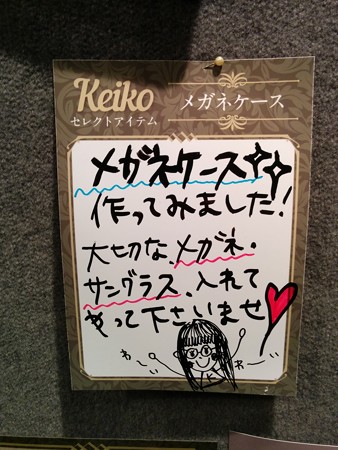 Keiko
セレクトアイテム
メガネケース
メガネケース
作ってみました!
大切な、メガネ・
サングラス、入れて
もって下さいませ
わ〜い
わーい